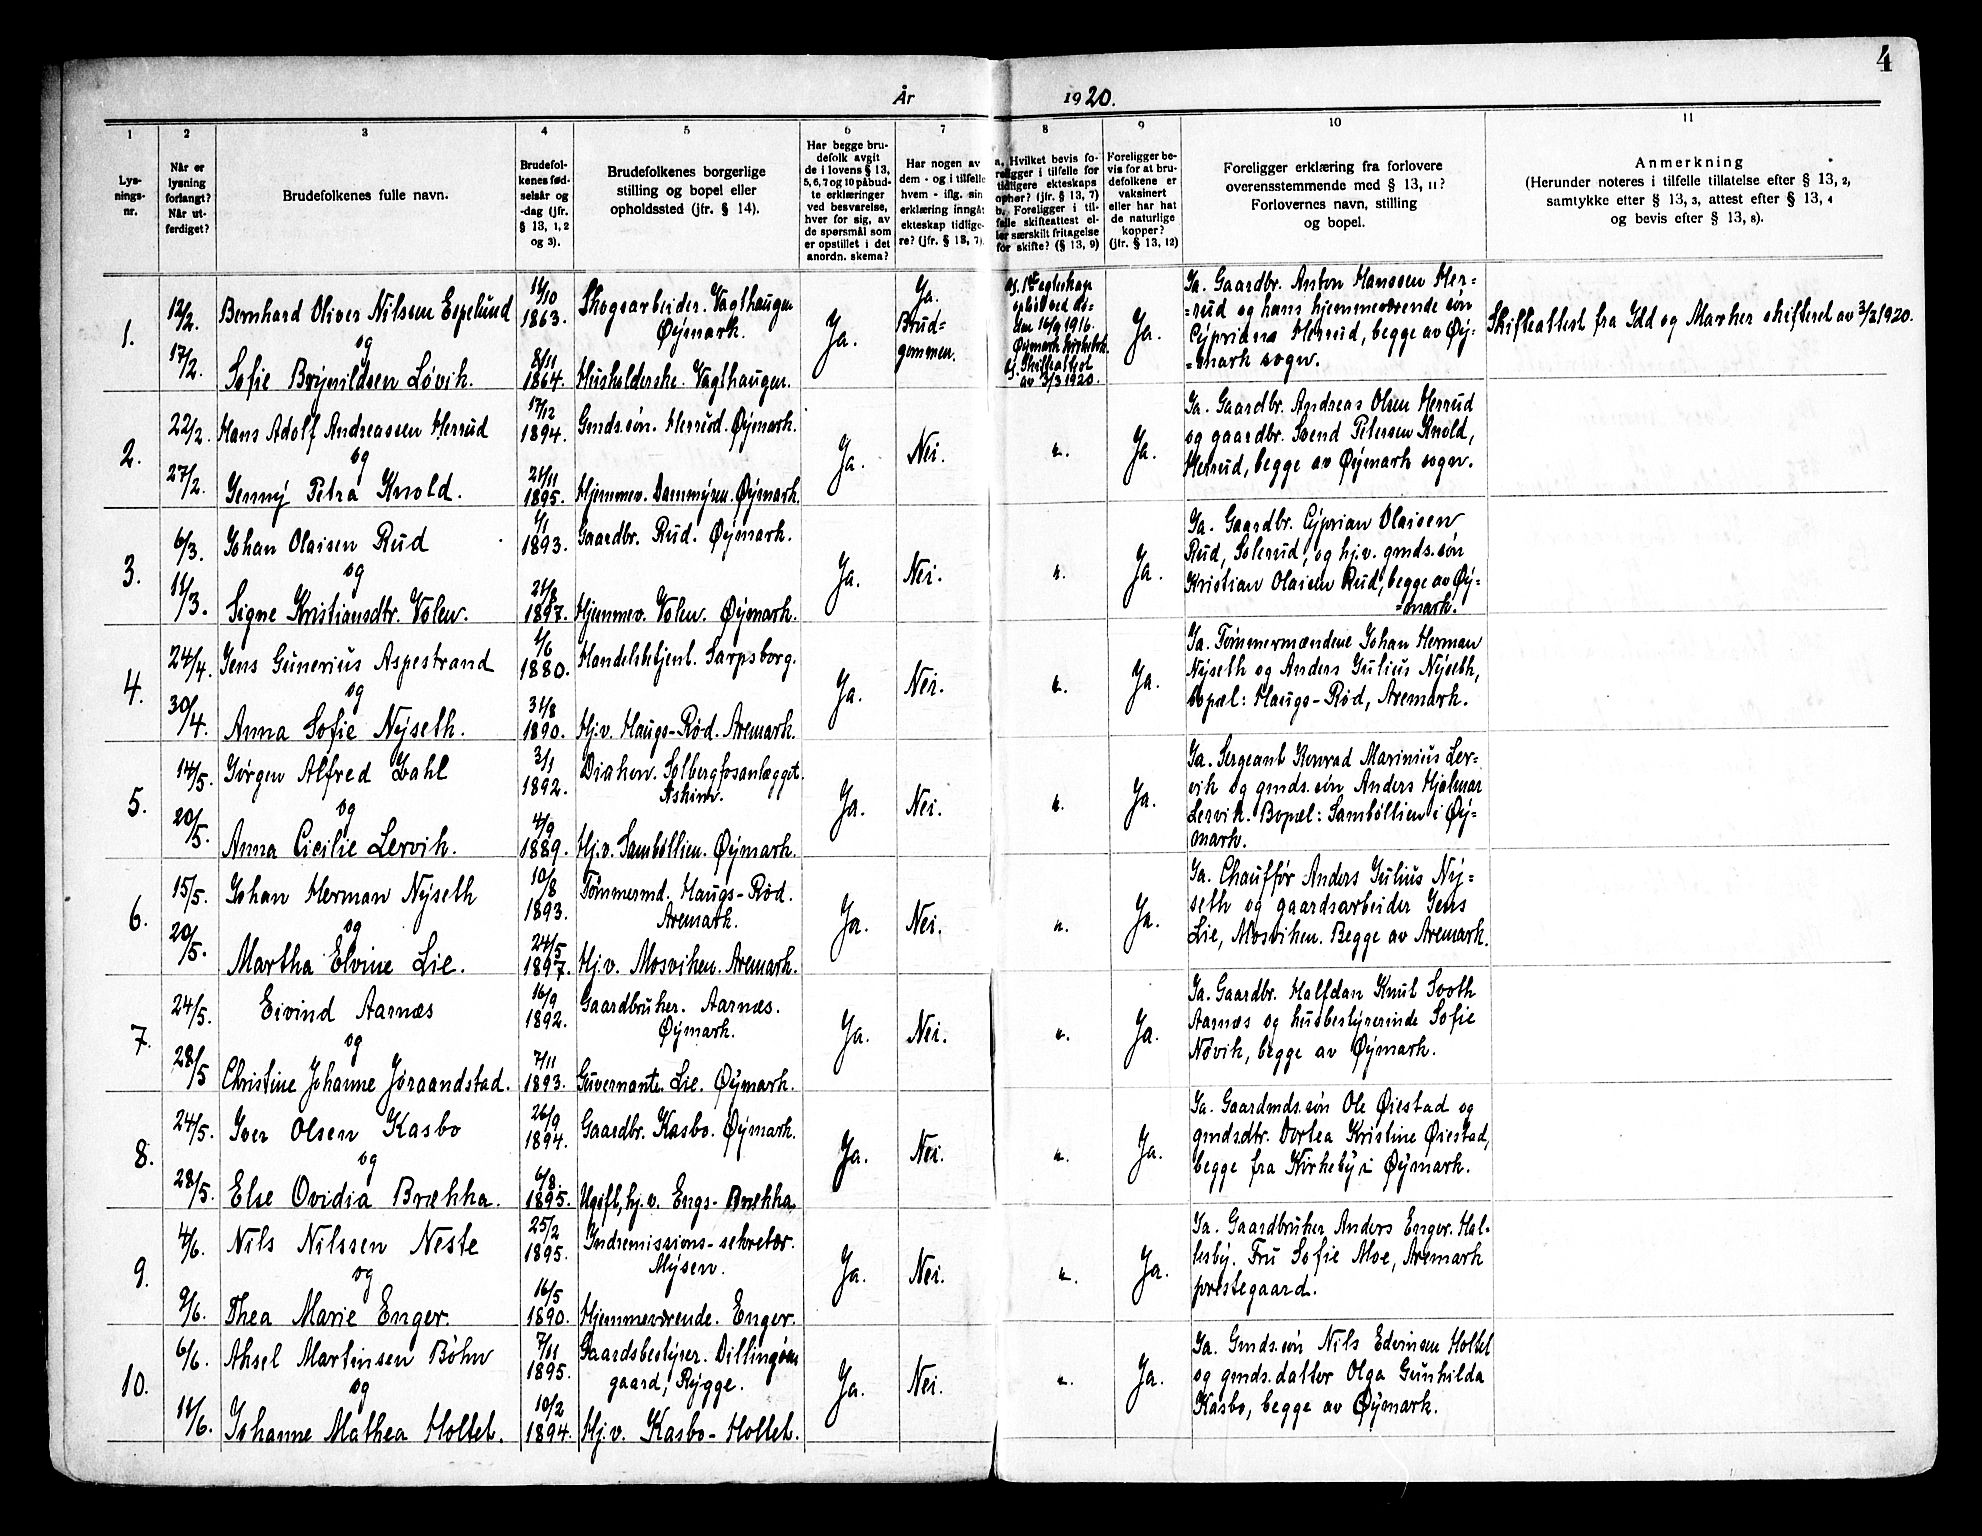 4
År 1920.
1 2 3 4 5 6 7 8 9 10 11
Lys-
nings-
nr.
Når er
lysning
forlangt?
Når ut-
ferdiget?
Brudefolkenes fulle navn.
Brudefol-
kenes fød-
selsår og
-dag (jfr.
§ 13, 1, 2
og 3).
Brudefolkenes borgerlige
stilling og bopel eller
opholdssted (jfr. § 14).
Har begge bru-
defolk avgit
de i lovens § 13,
5, 6, 7 og 10 påbud-
te erklæringer
ved besvarelse,
hver for sig, av
de spørsmål som
er opstillet i det
anordn. skema?
Har nogen av
dem - og i tilfelle
hvem - iflg. sin
erklæring inngåt
ekteskap tidlige-
re? (jfr. § 13, 7)
a. Hvilket bevis fo-
religger i tilfelle for
tidligere ekteskaps
ophør? (jfr. § 13, 7)
b. Foreligger i til-
felle skifteattest el-
ler særskilt fritagelse
for skifte? (§ 13, 9)
Foreligger be-
vis for at bru-
defolkene er
vaksinert
eller har hat
de naturlige
kopper?
(jfr. § 13, 12)
Foreligger erklæring fra forlovere
overensstemmende med § 13, 11?
Forlovernes navn, stilling
og bopel.
Anmerkning
(Herunder noteres i tilfelle tillatelse efter § 13, 2,
samtykke efter § 13, 3, attest efter § 13, 4
og bevis efter § 13, 8).
1.
12/2.
17/2.
Bernhard Oliver Nilssen Espelund
og
Sofie Brynildsen Løvik.
1863.
8/11
1864.
Skogsarbeider. Vagthaugen
Øymark.
Husholderske. Vagthaugen.
Ja.
Ja.
Brud=
gommen.
16/9 1916.
Øymark kirkebok.
Skifteattest
av 3/2 1920.
Ja.
Ja. Gaardbr. Anton Hanssen Her-
=rud og hans hjemmeværende søn
Cyprian Herrud, begge av Øy-
=mark sogn.
Skifteattest fra Idd og Marker skifteret av 3/2 1920.
2.
22/2.
27/2.
Hans Adolf Andreassen Herrud
og
Jenny Petra Knold.
17/12
1894.
21/11
1895.
Gmds.søn. Herrud. Øymark.
Hjemmev. Dammyren. Øymark.
Ja.
Nei.
"
Ja.
Ja. Gaardbr. Andreas Olsen Herrud
og gaardbr. Svend Petersen Knold,
Herrud, begge av Øymark sogn.
3.
6/3.
11/3.
Johan Olaisen Rud
og
Signe Kristiansdtr. Volen.
1/1
1893.
21/8
1897.
Gaardbr. Rud. Øymark.
Hjemmev. Volen. Øymark.
Ja.
Nei.
"
Ja.
Ja. Gaardbr. Cyprian Olaisen
Rud, Solerud, og hj.v. gmds.søn
Kristian Olaisen Rud, begge av Øy-
=mark.
4.
24/4.
30/4.
Jens Gunerius Aspestrand
og
Anna Sofie Nyseth.
1/6
1880.
31/8
1890.
Handelsbetjent. Sarpsborg.
Hj.v. Haugs-Rød. Aremark.
Ja.
Nei.
"
Ja.
Ja. Tømmermændene Johan Herman
Nyseth og Anders Julius Nyseth,
bopæl: Haugs-Rød, Aremark.
5.
14/5.
20/5.
Jørgen Alfred Dahl
og
Anna Cicilie Lervik.
3/1
1892.
4/9
1889.
Diakon. Solbergfosanlægget.
Askim.
Hj.v. Sambøllien. Øymark.
Ja.
Nei.
"
Ja.
Ja. Sergeant Konrad Marinius Ler-
vik og gmds.søn Anders Hjalmar
Lervik. Bopæl: Sambøllien i Øy-
mark.
6.
15/5.
20/5.
Johan Herman Nyseth
og
Martha Elvine Lie.
10/8
1893.
24/5
1897.
Tømmermd. Haugs-Rød.
Aremark.
Hj.v. Mosviken. Aremark.
Ja.
Nei.
"
Ja.
Ja. Chauffør Anders Julius Ny=
seth og gaardsarbeider Jens
Lie, Mosviken. Begge av Aremark.
7.
24/5.
28/5
Eivind Aarnæs
og
Christine Johanne Jøraandstad.
16/9
1892.
7/11
1893.
Gaardbruker. Aarnæs.
Øymark.
Guvernante. Lie. Øymark.
Ja.
Nei.
"
Ja.
Ja. Gaardbr. Halfdan Knut Sooth
Aarnæs og husbestyrerinde Sofie
Nøvik, begge av Øymark.
8.
24/5.
28/5.
Iver Olsen Kasbo
og
Else Ovidia Brækka.
26/9
1894.
6/8.
1895.
Gaardbr. Kasbo. Øymark.
Ugift, hj.v. Engs-Brækka
Ja.
Nei.
"
Ja.
Ja. Gaardmds.søn Ole Øiestad og
gmdsdtr. Dortea Kristine Øiestad,
begge fra Kirkeby i Øymark.
9.
4/6.
9/6.
Nils Nilssen Neste
og
Thea Marie Enger.
25/2
1895.
16/5
1890.
Indremissions-sekretær.
Mysen.
Hjemmeværende. Enger.
Ja.
Nei.
"
Ja.
Ja. Gaardbruker Anders Enger. Hal-
lesby. Fru Sofie Moe, Aremark
prestegaard.
10.
6/6.
11/6.
Aksel Martinsen Bøhn
og
Johanne Mathea Holtet.
7/11
1895.
10/2
1894.
Gaardsbestyrer. Dillingøen
gaard, Rygge.
Hj.v. Kasbo-Holtet.
Ja.
Nei.
"
Ja.
Ja. Gmds.søn Nils Edvinsen Holtet
og gmds.datter Olga Gunhilda
Kasbo, begge av Øymark.